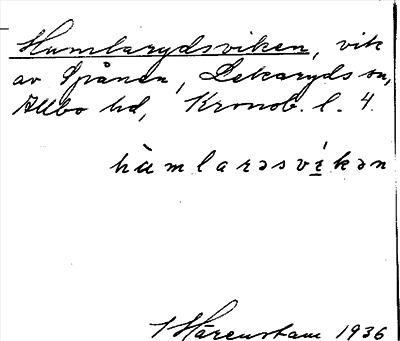 Humlarydsviken, vik
av Spånen, Lekaryds sn,
Allbo hd, Kronob. l. 4.
hùmlarəsvíkən
Härenstam 1936